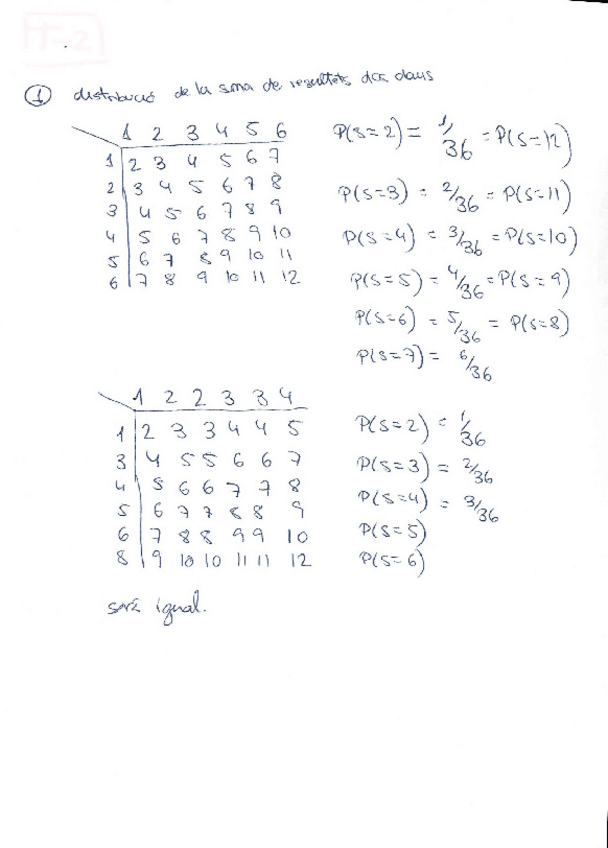 H-2
① distribució de la suma de resultats dos daus
1 2 3 4 5 6
1 2 3 4 5 6 7
2 3 4 5 6 7 8
3 4 5 6 7 8 9
4 5 6 7 8 9 10
5 6 7 8 9 10 11
6 7 8 9 10 11 12
P(S=2) = 1/36 = P(S=12)
P(S=3) = 2/36 = P(S=11)
P(S=4) = 3/36 = P(S=10)
P(S=5) = 4/36 = P(S=9)
P(S=6) = 5/36 = P(S=8)
P(S=7) = 6/36
1 2 2 3 3 4
1 2 3 3 4 4 5
3 4 5 5 6 6 7
4 5 6 6 7 7 8
5 6 7 7 8 8 9
6 7 8 8 9 9 10
8 9 10 10 11 11 12
P(S=2) = 1/36
P(S=3) = 2/36
P(S=4) = 3/36
P(S=5)
P(S=6)
serà igual.